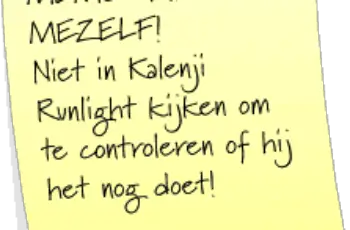 MEZELF!
Niet in Kalenji
Runlight kijken om
te controleren of hij
het nog doet!